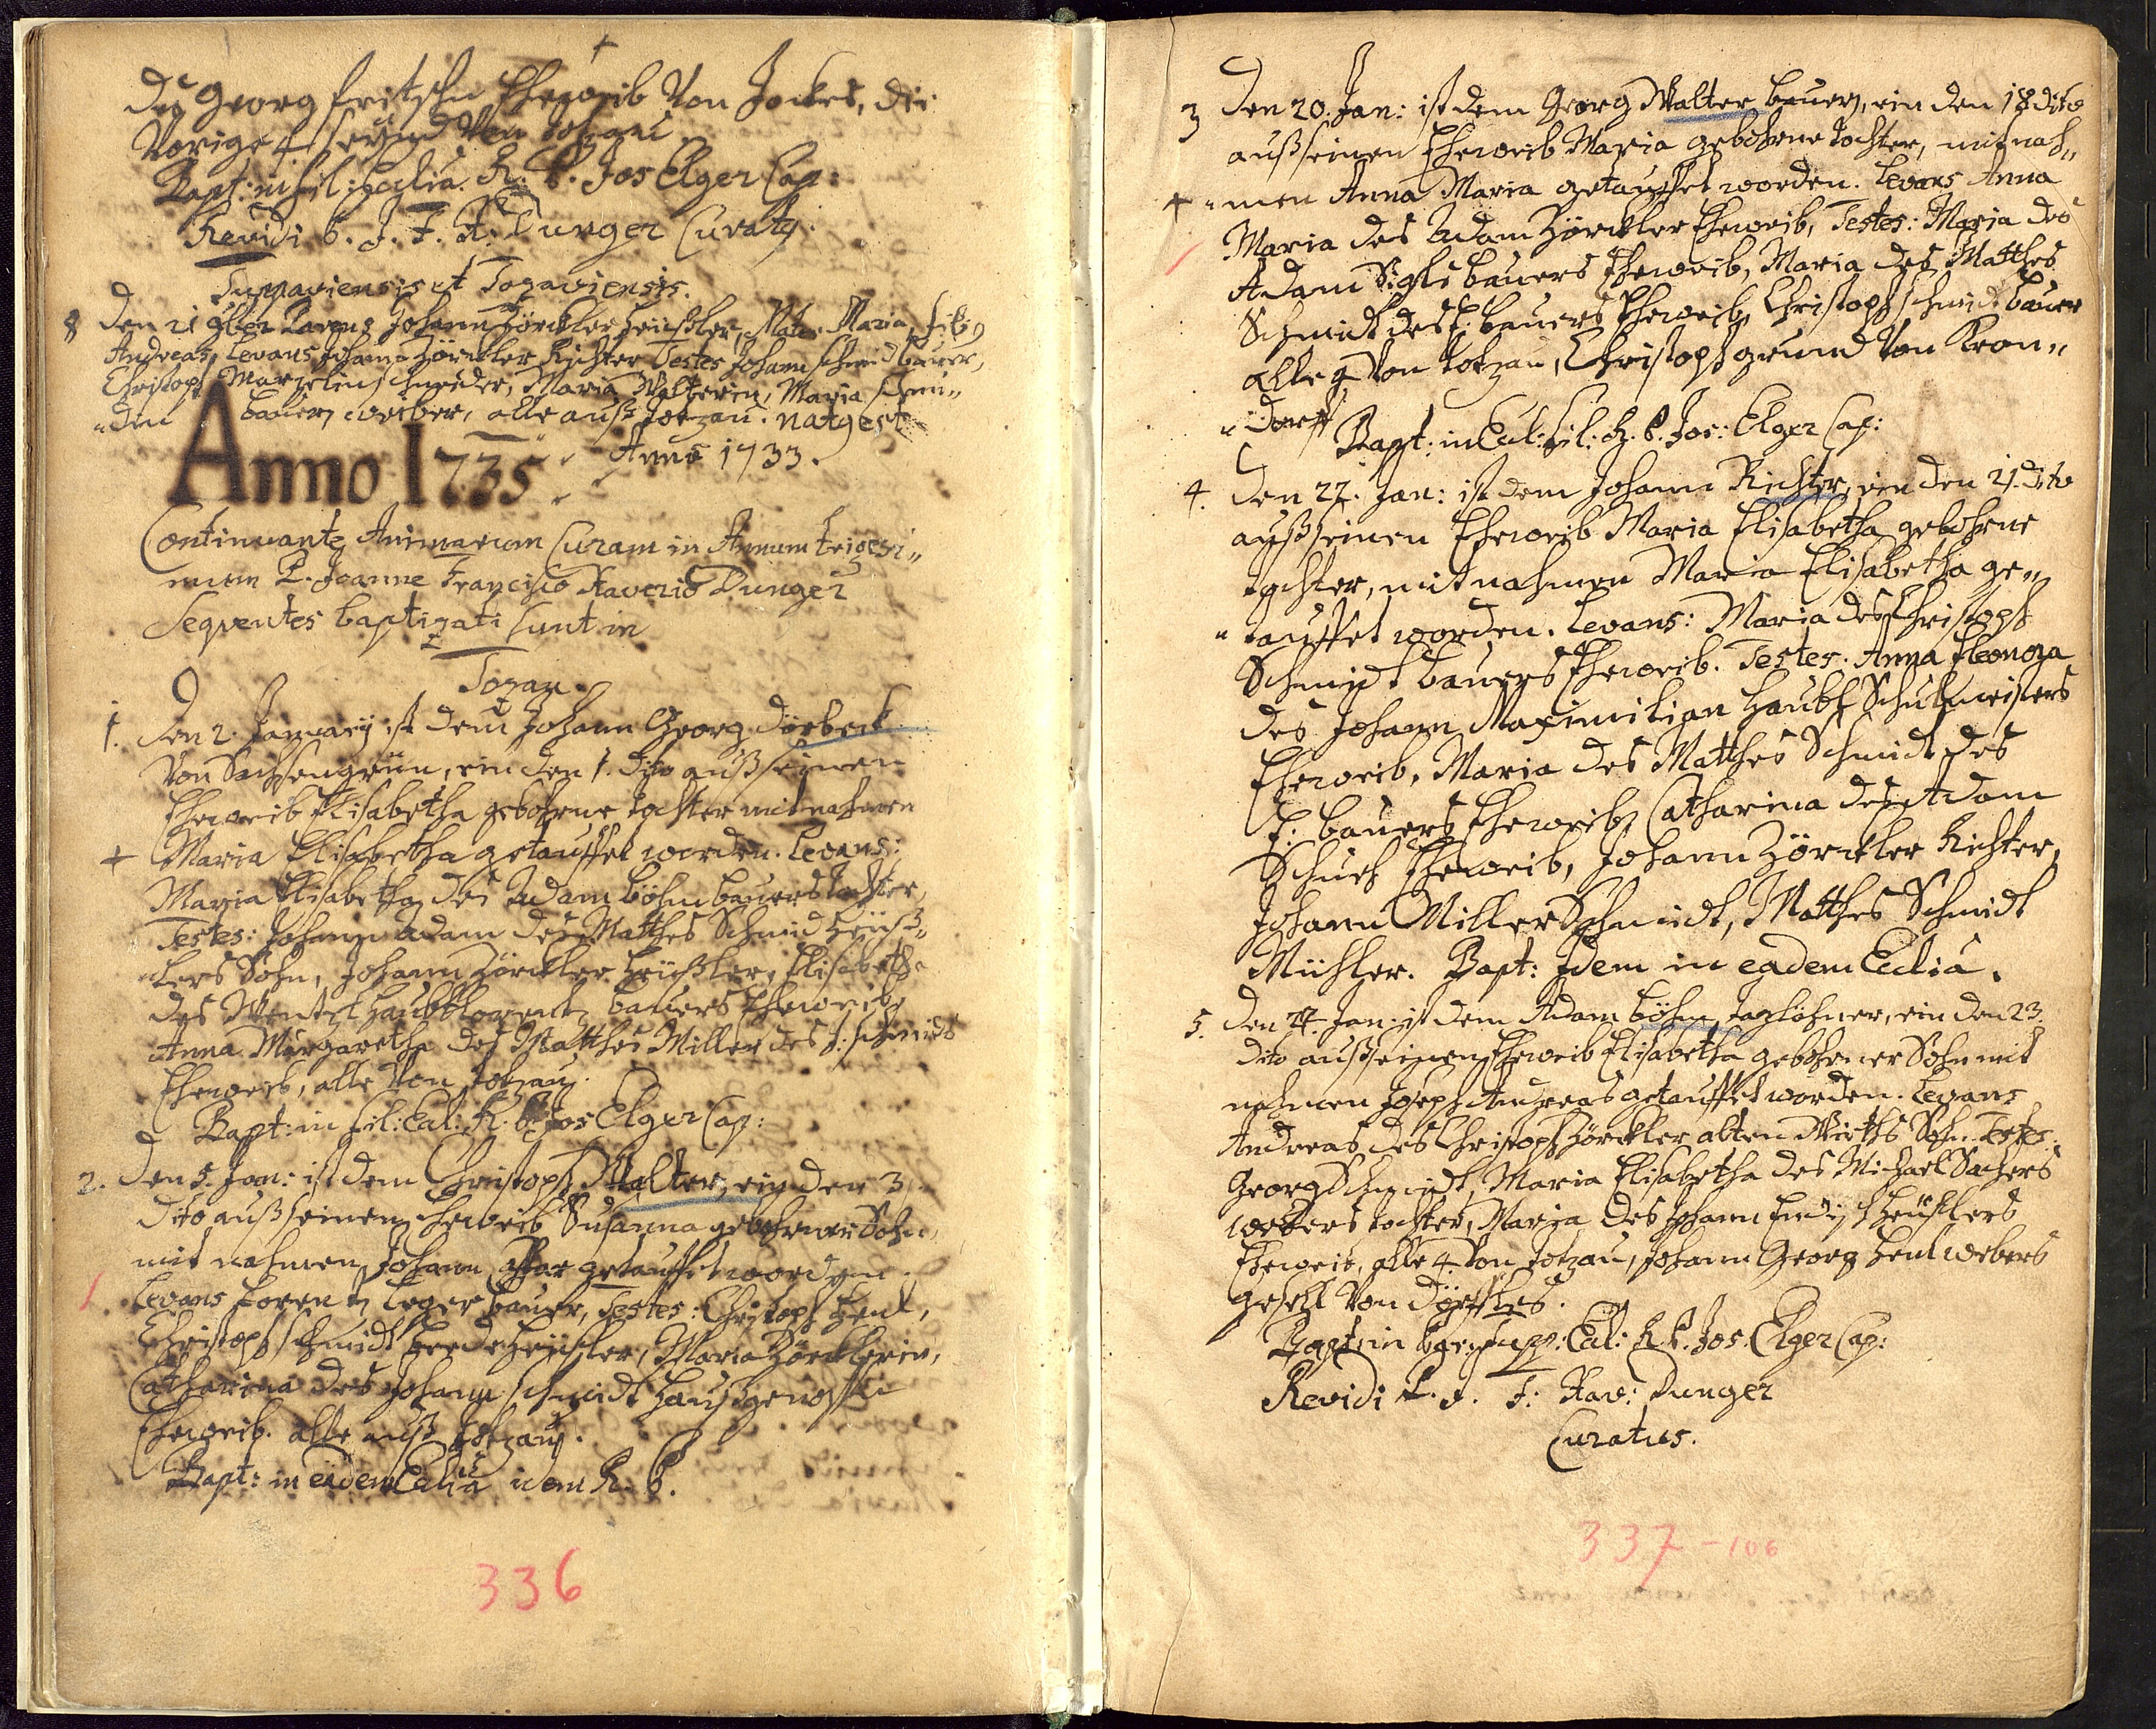 des Georg fritschn Eheweib Von Jockes, die
Vorige 4 seynd Von Totzau
Bapt: in fil: Ecclia. R. P. Jos Elger Cap:
Revidi P. J. F. X. Dunger Curatg.
Duppaviensis et Tozaviensis.
8 den 21 9ber Parens Johann Zörckler heüßler, Mater Maria, filig
Andreas, Levans Johann Zörckler Richter Testes Johann schmid bauer,
Christoph Marzelin schneider, Maria Walterin, Maria schmi„
„din bauern weiber, alle auß Totzau. natg est
Anno 1735 Anno 1733.
Continuante Animarum Curam in Annum trigesi„
mum P. Joanne Francisco Xaverio Dunger
Seqventes baptizati sunt in
Tozau.
1. den 2. January ist dem Johann Georg dörbeck
Von Sachsengrün, ein den 1. dito auß seinen
Eheweib Elisabetha gebohrne tochter mit nahmen
+ Maria Elisabetha getauffet worden. Levans:
Maria Elisabetha des Adam Böhm bauers tochter,
Testes: Johann Adam des Matthes Schmid heüß„
„lers Sohn, Johann Zörckler heüßler, Elisabetha
des Wentzl Haubt bauers Eheweib
Anna Margaretha des Matthes Miller des J: schmids
Eheweib, alle Von Totzau.
Bapt: in fil: Eccl: R. P. Jos Elger Cap:
2. den 5. Jan: ist dem Christoph Walter, ein den 3
dito auß seinem eheweib Susanna gebohrner Sohn
mit nahmen Johann getauffet worden.
Levans Lorentz Leger bauer, Testes: Christoph Henl,
Christoph schmidt beede heüßler, Maria Zörcklerin,
Catharina des Johann schmidt haußgenossen
Eheweib. alle auß Totzau.
Bapt: in eadem Ecclia idem R. P.
336
3 den 20. Jan: ist dem Georg Walter bauern, ein den 18 dito
auß seinen Eheweib Maria gebohrne tochter, mit nah„
+ „men Anna Maria getauffet worden. Levans Anna
Maria des Adam Zörckler Eheweib, Testes: Maria des
Adam Sigls bauers Eheweib, Maria des Matthes
Schmidt des E. bauers Eheweib, Christoph schmidt bauer
alle 4 Von totzau, Christoph grund Von Kron„
„dorff
Bapt: in Eccl: fil: R. P. Jos: Elger Cap:
4. den 22. Jan: ist dem Johann Richter, ein den 21. dito
auß seinen Eheweib Maria Elisabetha gebohrne
tochter, mit nahmen Maria Elisabetha ge„
„tauffet worden. Levans: Maria des Christoph
Schmidt bauers Eheweib. Testes. Anna Eleonora
des Johann Maximilian Haubt Schulmeisters
Eheweib, Maria des Matthes Schmidt des
E: bauers Eheweib, Catharina des Adam
Schuch Eheweib, Johann Zörckler Richter,
Johann Miller Schmidt, Matthes Schmidt
Mühler. Bapt: Idem in eadem Ecclia.
5. den 24. Jan: ist dem Adam böhm, taglöhner, ein den 23.
dito auß seinen Eheweib Elisabetha gebohrner Sohn mit
nahmen Joseph Andreas getauffet worden. Levans
Andreas des Christoph Zörckler alten Wirths Sohn. Testes:
Georg Schmidt, Maria Elisabetha des Michael Sachers
webers tochter, Maria des Johann heüßlers
Eheweib, alle 4. Von totzau, Johann Georg Henl webers
gesell Von dörffles.
Bapt: in Eccl: R. P. Jos. Elger Cap:
Revidi P. J. F: Xav: Dunger
Curatus.
337 - 106